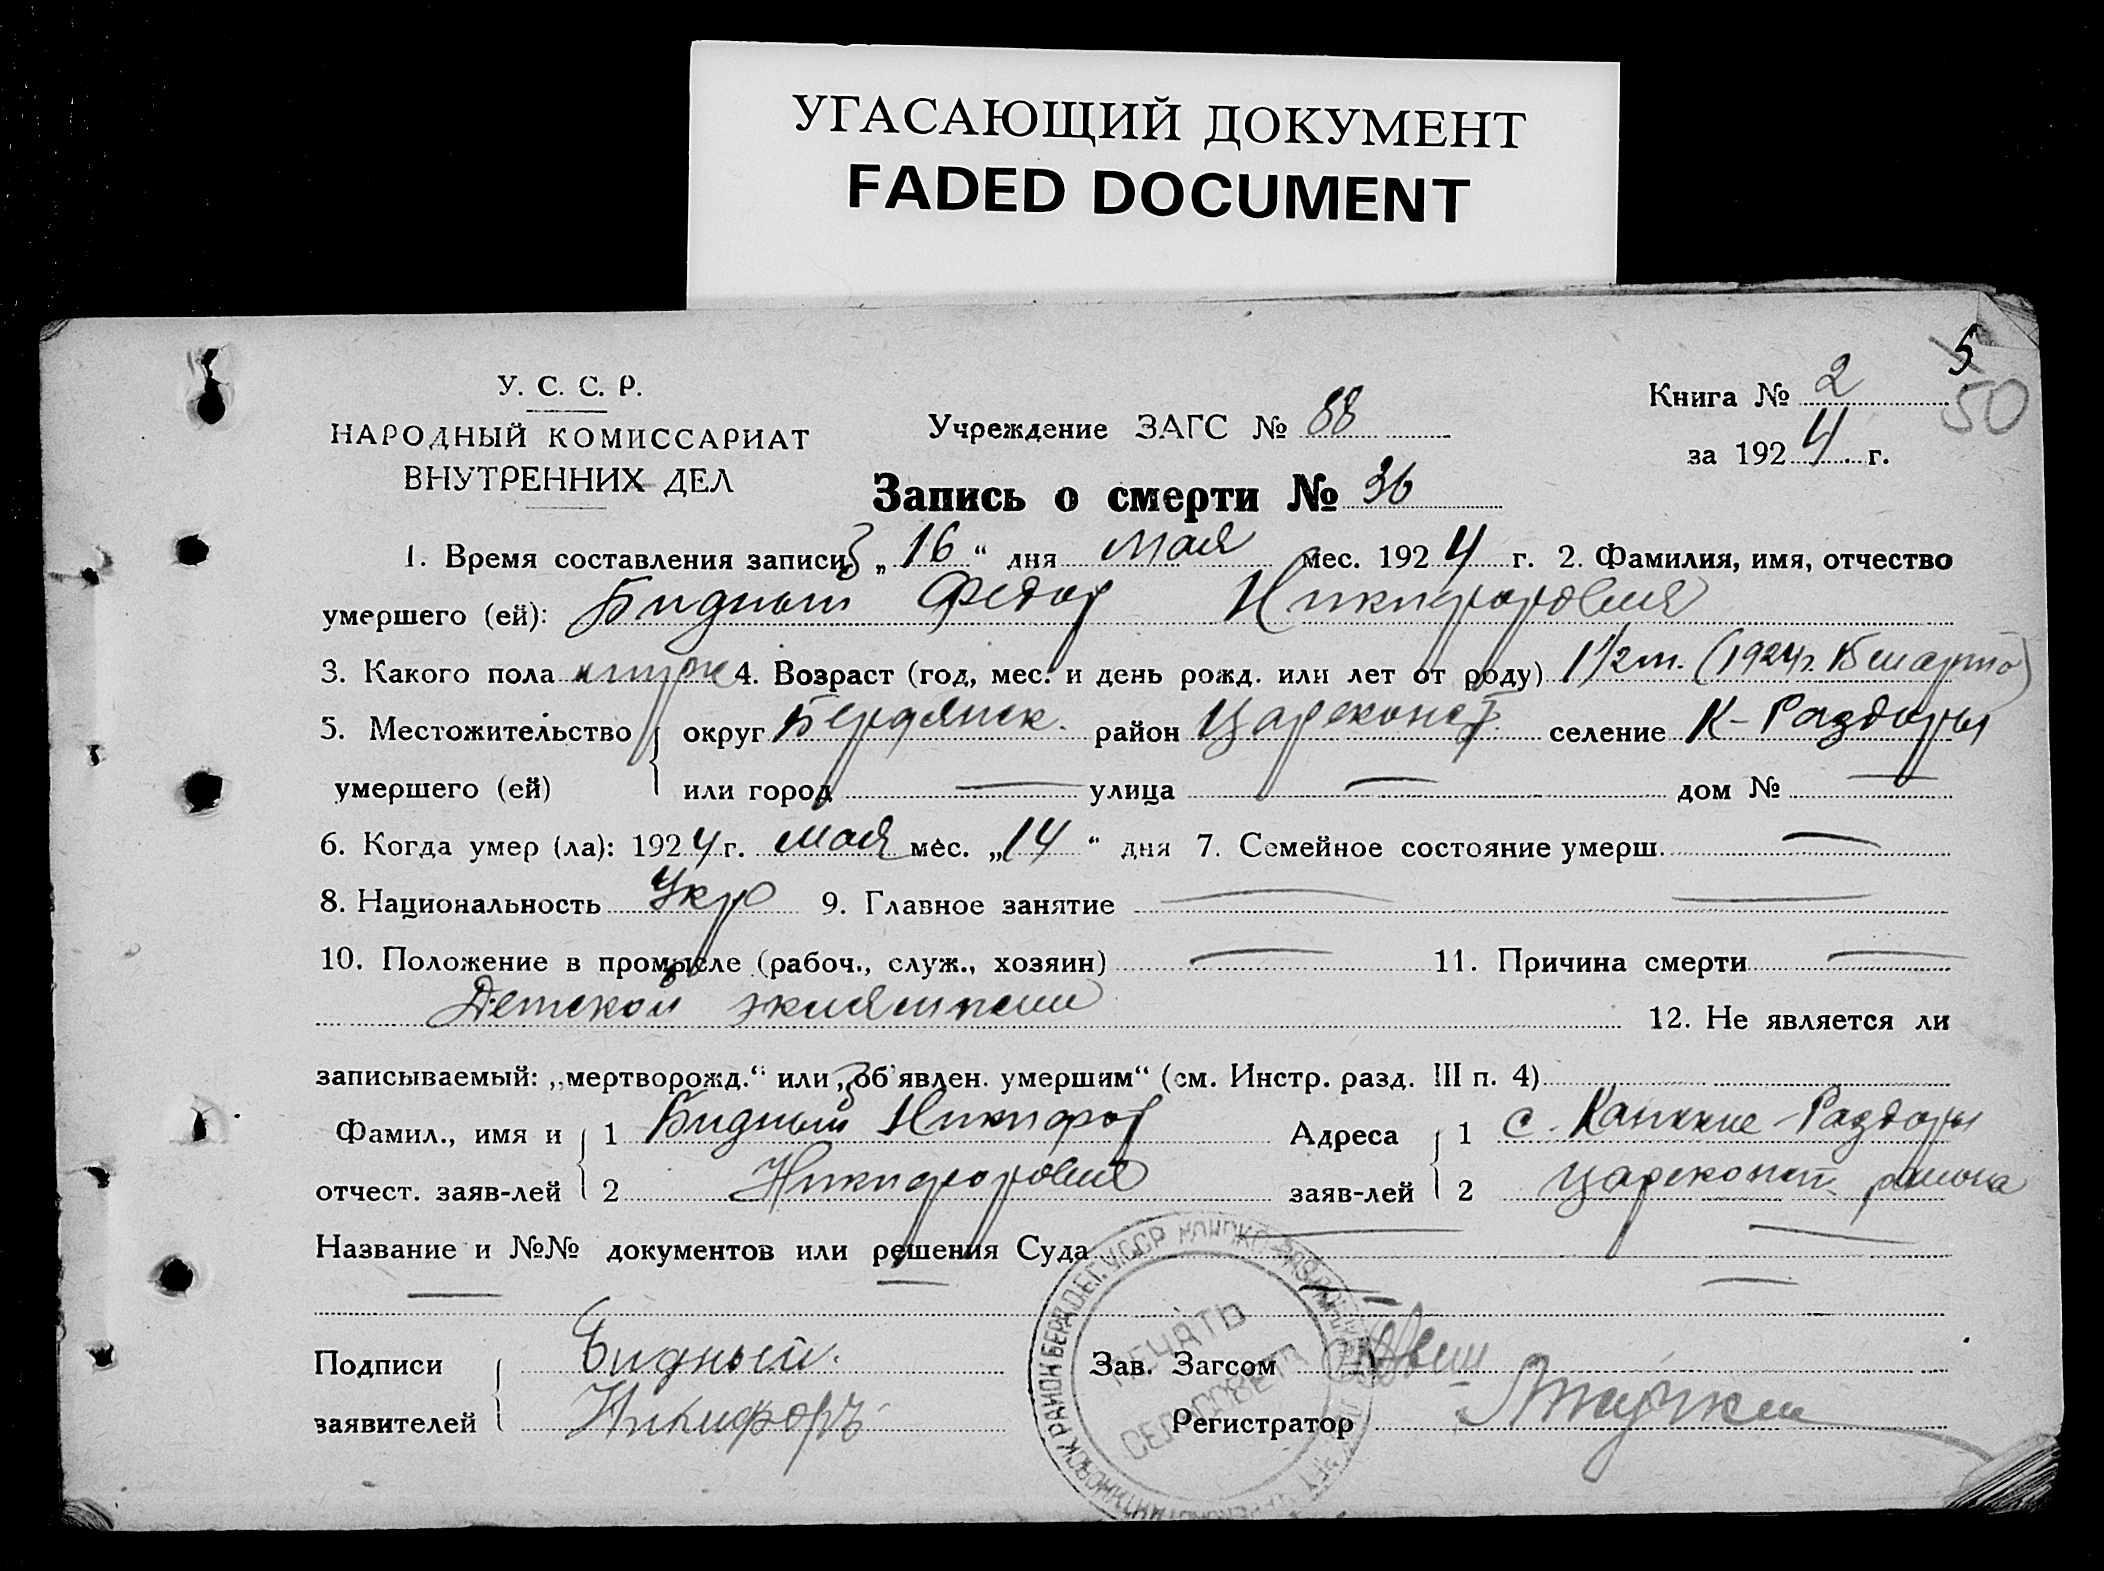 УГАСАЮЩИЙ ДОКУМЕНТ
FADED DOCUMENT
5
50
У. С. С. Р.
НАРОДНЫЙ КОМИССАРИАТ
ВНУТРЕННИХ ДЕЛ
Учреждение ЗАГС № 88
Книга № 2
за 1924 г.
Запись о смерти № 36
1. Время составления записи „16“ дня мая мес. 1924 г. 2. Фамилия, имя, отчество
умершего (ей): Бидный Федор Никифорович
3. Какого пола 4. Возраст (год, мес. и день рожд. или лет от роду) 1 1/2 м. (1924 г.
5. Местожительство округ Бердянск. район Цареконст. селение К-Раздоры
умершего (ей) или город — улица — дом № —
6. Когда умер (ла): 1924 г. мая мес. „14“ дня 7. Семейное состояние умерш. —
8. Национальность Укр 9. Главное занятие — —
10. Положение в промысле (рабоч., служ., хозяин) — 11. Причина смерти —
Детской эклямпсии 12. Не является ли
записываемый: „мертворожд.“ или „об'явлен. умершим“ (см. Инстр. разд. III п. 4)
Фамил., имя и 1 Бидный Никифор Адреса 1 с. Канские-Раздоры
отчест. заяв-лей 2 Никифорович заяв-лей 2 Цареконст. района
Название и №№ документов или решения Суда — —
— — — —
Подписи Бидный. Зав. Загсом
заявителей Никифоръ Регистратор
ПЕЧАТЬ
СЕЛЬСОВЕТА